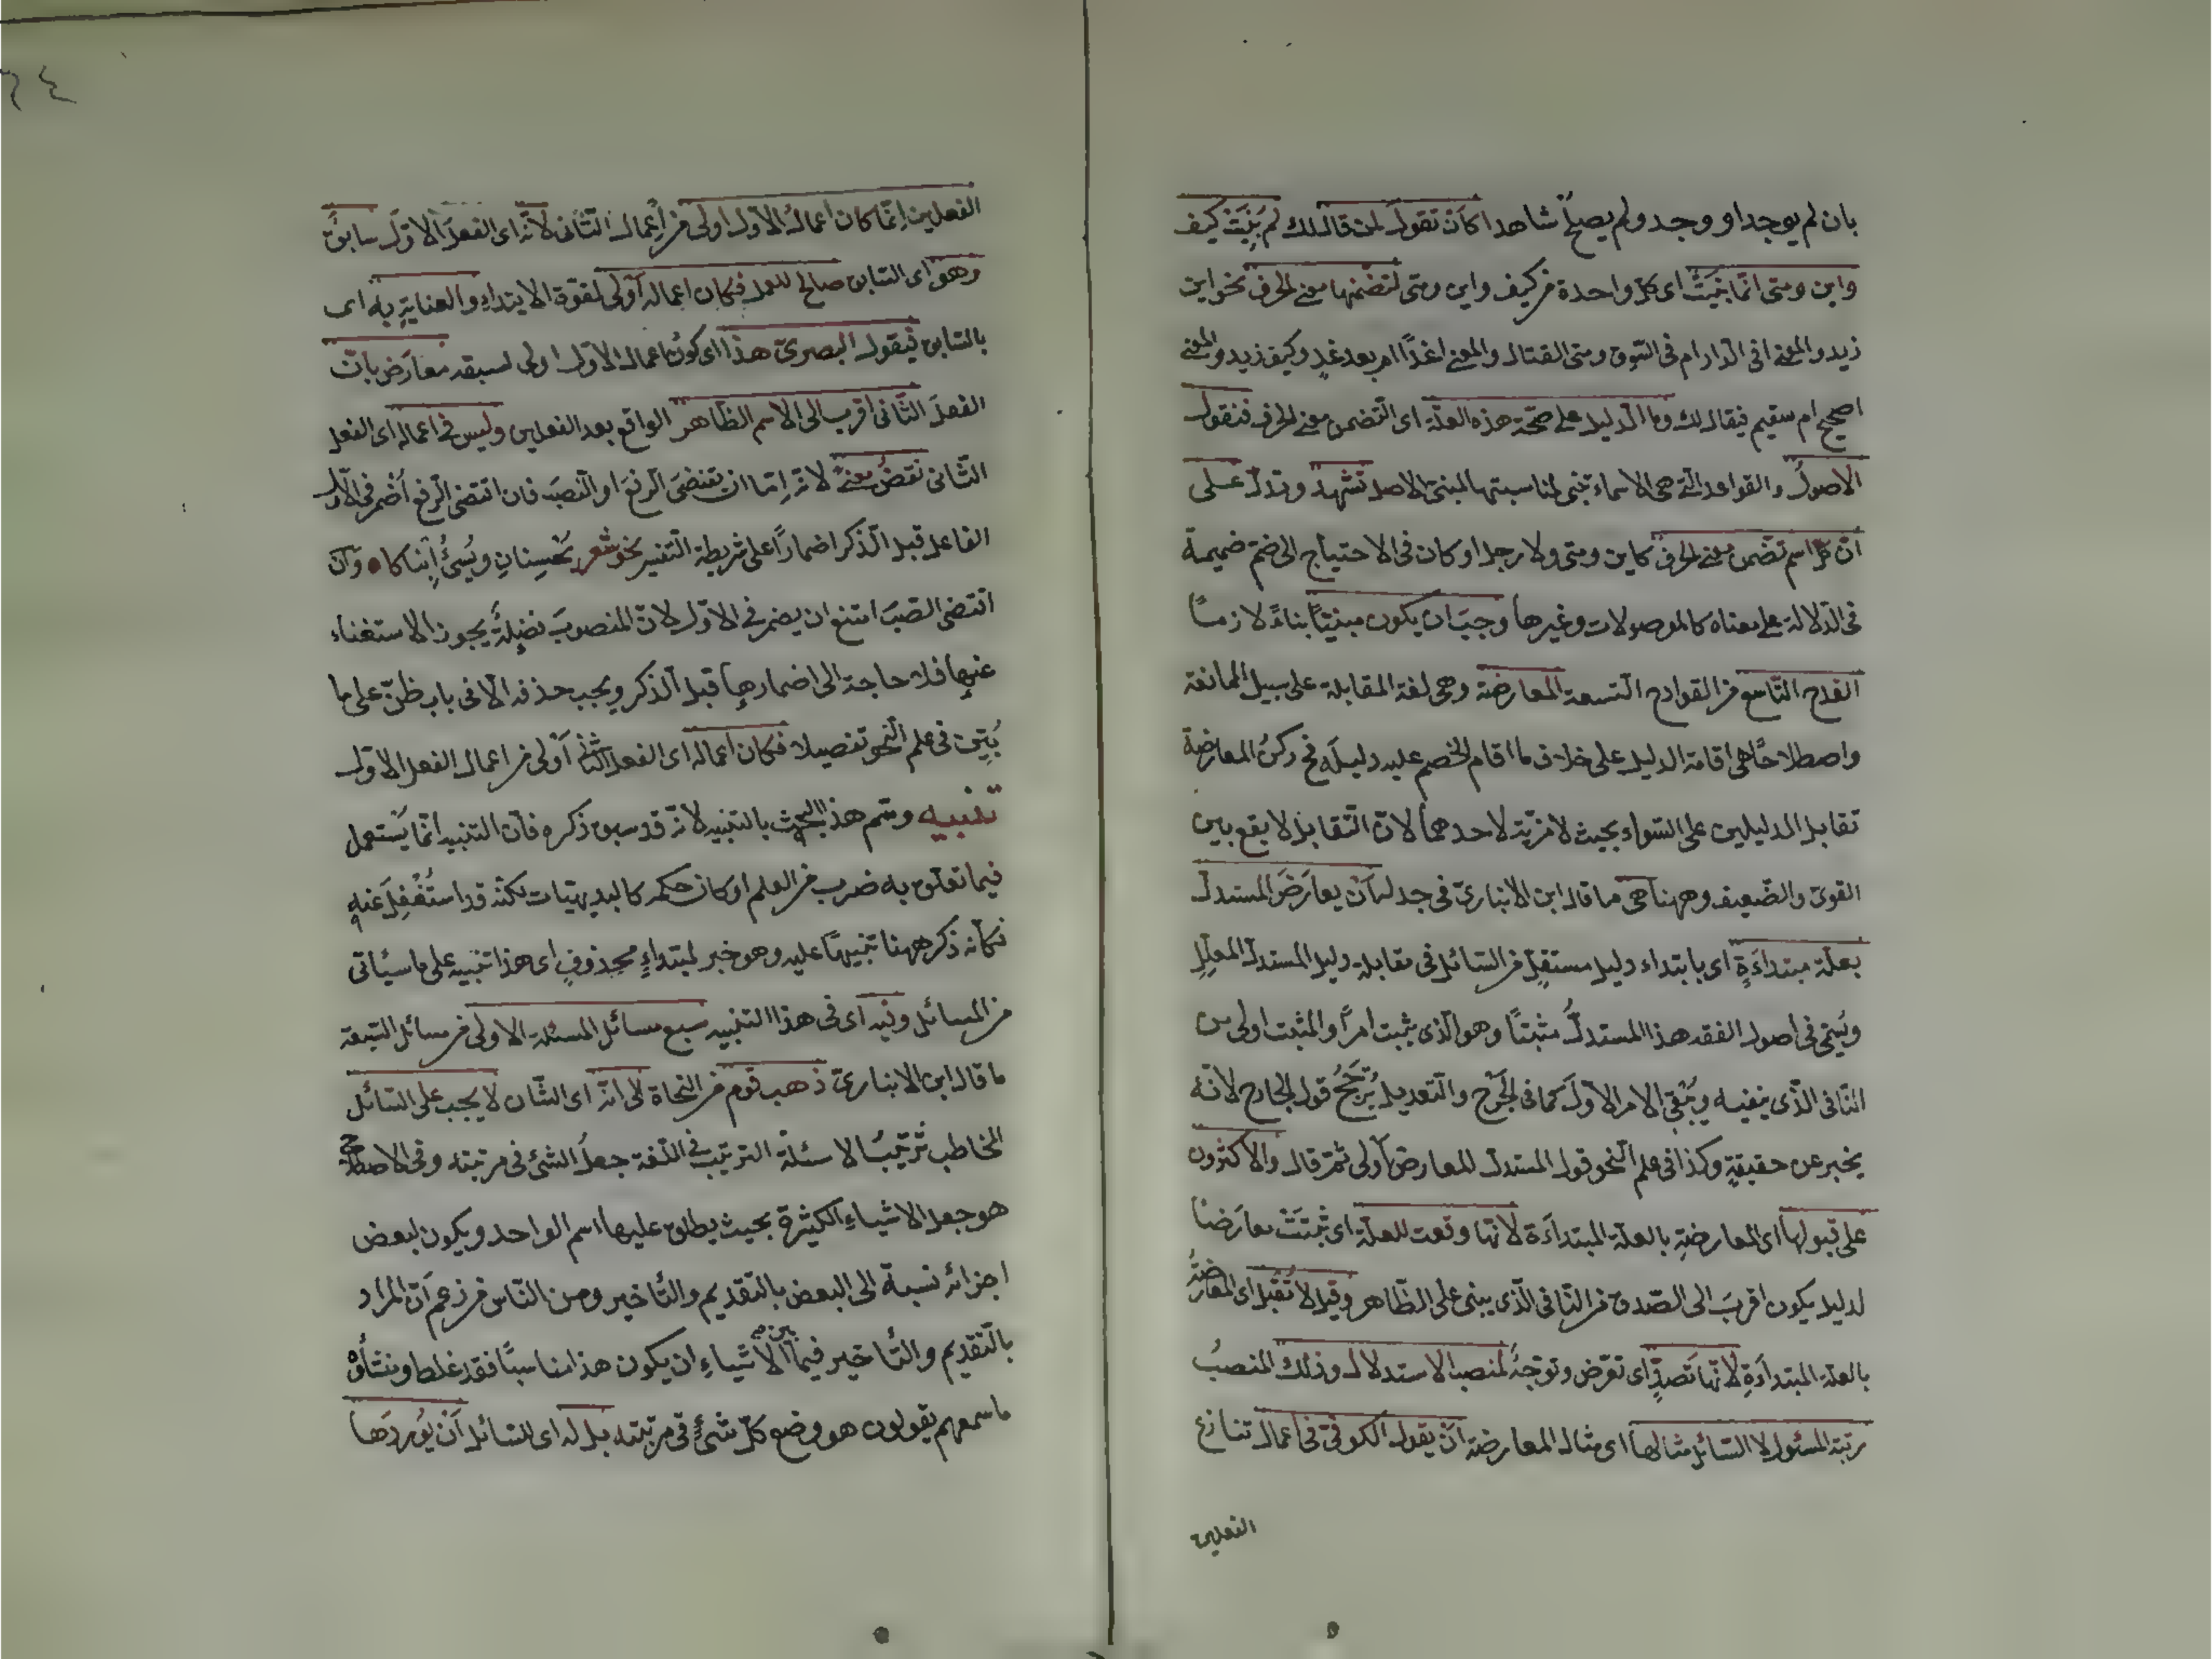 بان لم يوجد او وجد ولم يصلح شاهدا كأن تقول لمن قال لك لم بنيت كيف
واين ومتى انما بنيت اى كل واحدة من كيف واين ومتى لتضمنها معنى الحرف نحو اين
زيد والمعنى افى الدار ام فى السوق ومتى القتال والمعنى اغدًا ام بعد غدٍ وكيف زيد والمعنى
اصحيح ام سقيم فيقال لك وما الدليل على صحة هذه العلة اى التضمن معنى الحرف فنقول
الاصول والقواعد التى هى الاسماء تبنى لمناسبتها المبنى الاصل تشهد وتدل على
ان كل اسم تضمن معنى الحرف كاين ومتى ولا رجل او كان فى الاحتياج الى ضم ضميمة
فى الدلالة على معناه كالموصولات وغيرها وجب ان يكون مبنيًا بناءً لازمًا
القدح التاسع من القوادح التسعة المعارضة وهى لغة المقابلة على سبيل الممانعة
واصطلاحًا هى اقامة الدليل على خلاف ما اقام الخصم عليه دليله فح ركن المعارضة
تقابل الدليلين على السواء بحيث لا مزية لاحدهما لان التقابل لا يقع بين
القوى والضعيف وههنا هى ما قال ابن الانبارى فى جدله ان يعارض المستدل
بعلة مبتداءةٍ اى بابتداء دليل مستقل من السائل فى مقابلة دليل المستدل المعلل
ويسمى فى اصول الفقه هذا المستدل مثبتًا وهو الذى يثبت امرًا والمثبت اولى من
النافى الذى ينفيه ويبقى الامر الاول كما فى الجرح والتعديل يرجح قول الجارح لانه
يخبر عن حقيقةٍ وكذا فى علم النحو قول المستدل المعارض اولى ثم قال والاكثرون
على قبولها اى المعارضة بالعلة المبتداءة لانها وقعت للعلة اى ثبتت معارضًا
لدليل يكون اقرب الى الصدق من الثانى الذى يبنى على الظاهر وقيل لا تقبل اى المعارضة
بالعلة المبتداءة لانها تصدٍّ اى تعرض وتوجه لمنصب الاستدلال وذلك المنصب
مرتبة المسئول لا السائل مثالها اى مثال المعارضة ان يقول الكوفى فى اعمال تنازع
الفعلين
الفعلين انما كان اعمال الاول اولى من اعمال الثانى لانه اى الفعل الاول سابق
وهو اى السابق صالح للعمل فكان اعماله اولى لقوة الابتداء والعناية به اى
بالسابق فيقول البصرى هذا اى كون اعمال الاول اولى لسبقه معارض بان
الفعل الثانى اقرب الى الاسم الظاهر الواقع بعد الفعلين وليس فى اعماله اى الفعل
الثانى نقض معنى لانه اما ان تقتضى الرفع او النصب فان اقتضى الرفع اضمر فى الاول
الفاعل قبل الذكر اضمارًا على شريطة التفسير نحو شعر يحسنان ويسئ ابناكا ه وان
اقتضى النصب امتنع ان يضمر فى الاول لان المنصوب فضلة يجوز الاستغناء
عنها فلا حاجة الى اضمارها قبل الذكر ويجب حذفه الا فى باب ظن على ما
بين فى علم النحو تفصيلا فكان اعماله اى الفعل الثانى اولى من اعمال الفعل الاول
تنبيه وسم هذا البحث بالتنبيه لانه قد سبق ذكره فان التنبيه انما يستعمل
فيما تعلق به ضرب من العلم او كان حكمه كالبديهيات لكنه قد استغفل عنه
فكأنه ذكر ههنا تنبيهًا عليه وهو خبر لمبتداءٍ محذوفٍ اى هذا تنبيه على ما سيأتى
من المسائل وفيه اى فى هذا التنبيه سبع مسائل المسئلة الاولى من مسائل السبعة
ما قال ابن الانبارى ذهب قوم من النحاة الى انه اى الشان لا يجب على السائل
المخاطب ترتيب الاسئلة الترتيب فى اللغة جعل الشئ فى مرتبته وفى الاصطلاح
هو جعل الاشياء الكثيرة بحيث يطلق عليها اسم الواحد ويكون لبعض
اجزائه نسبة الى البعض بالتقديم والتأخير ومن الناس من زعم ان المراد
بالتقديم والتأخير فيما بين الاشياء ان يكون هذا مناسبًا فقد غلط ومنشأوه
ما سمعهم يقولون هو وضع كل شئ فى مرتبته بل له اى للسائل ان يوردها